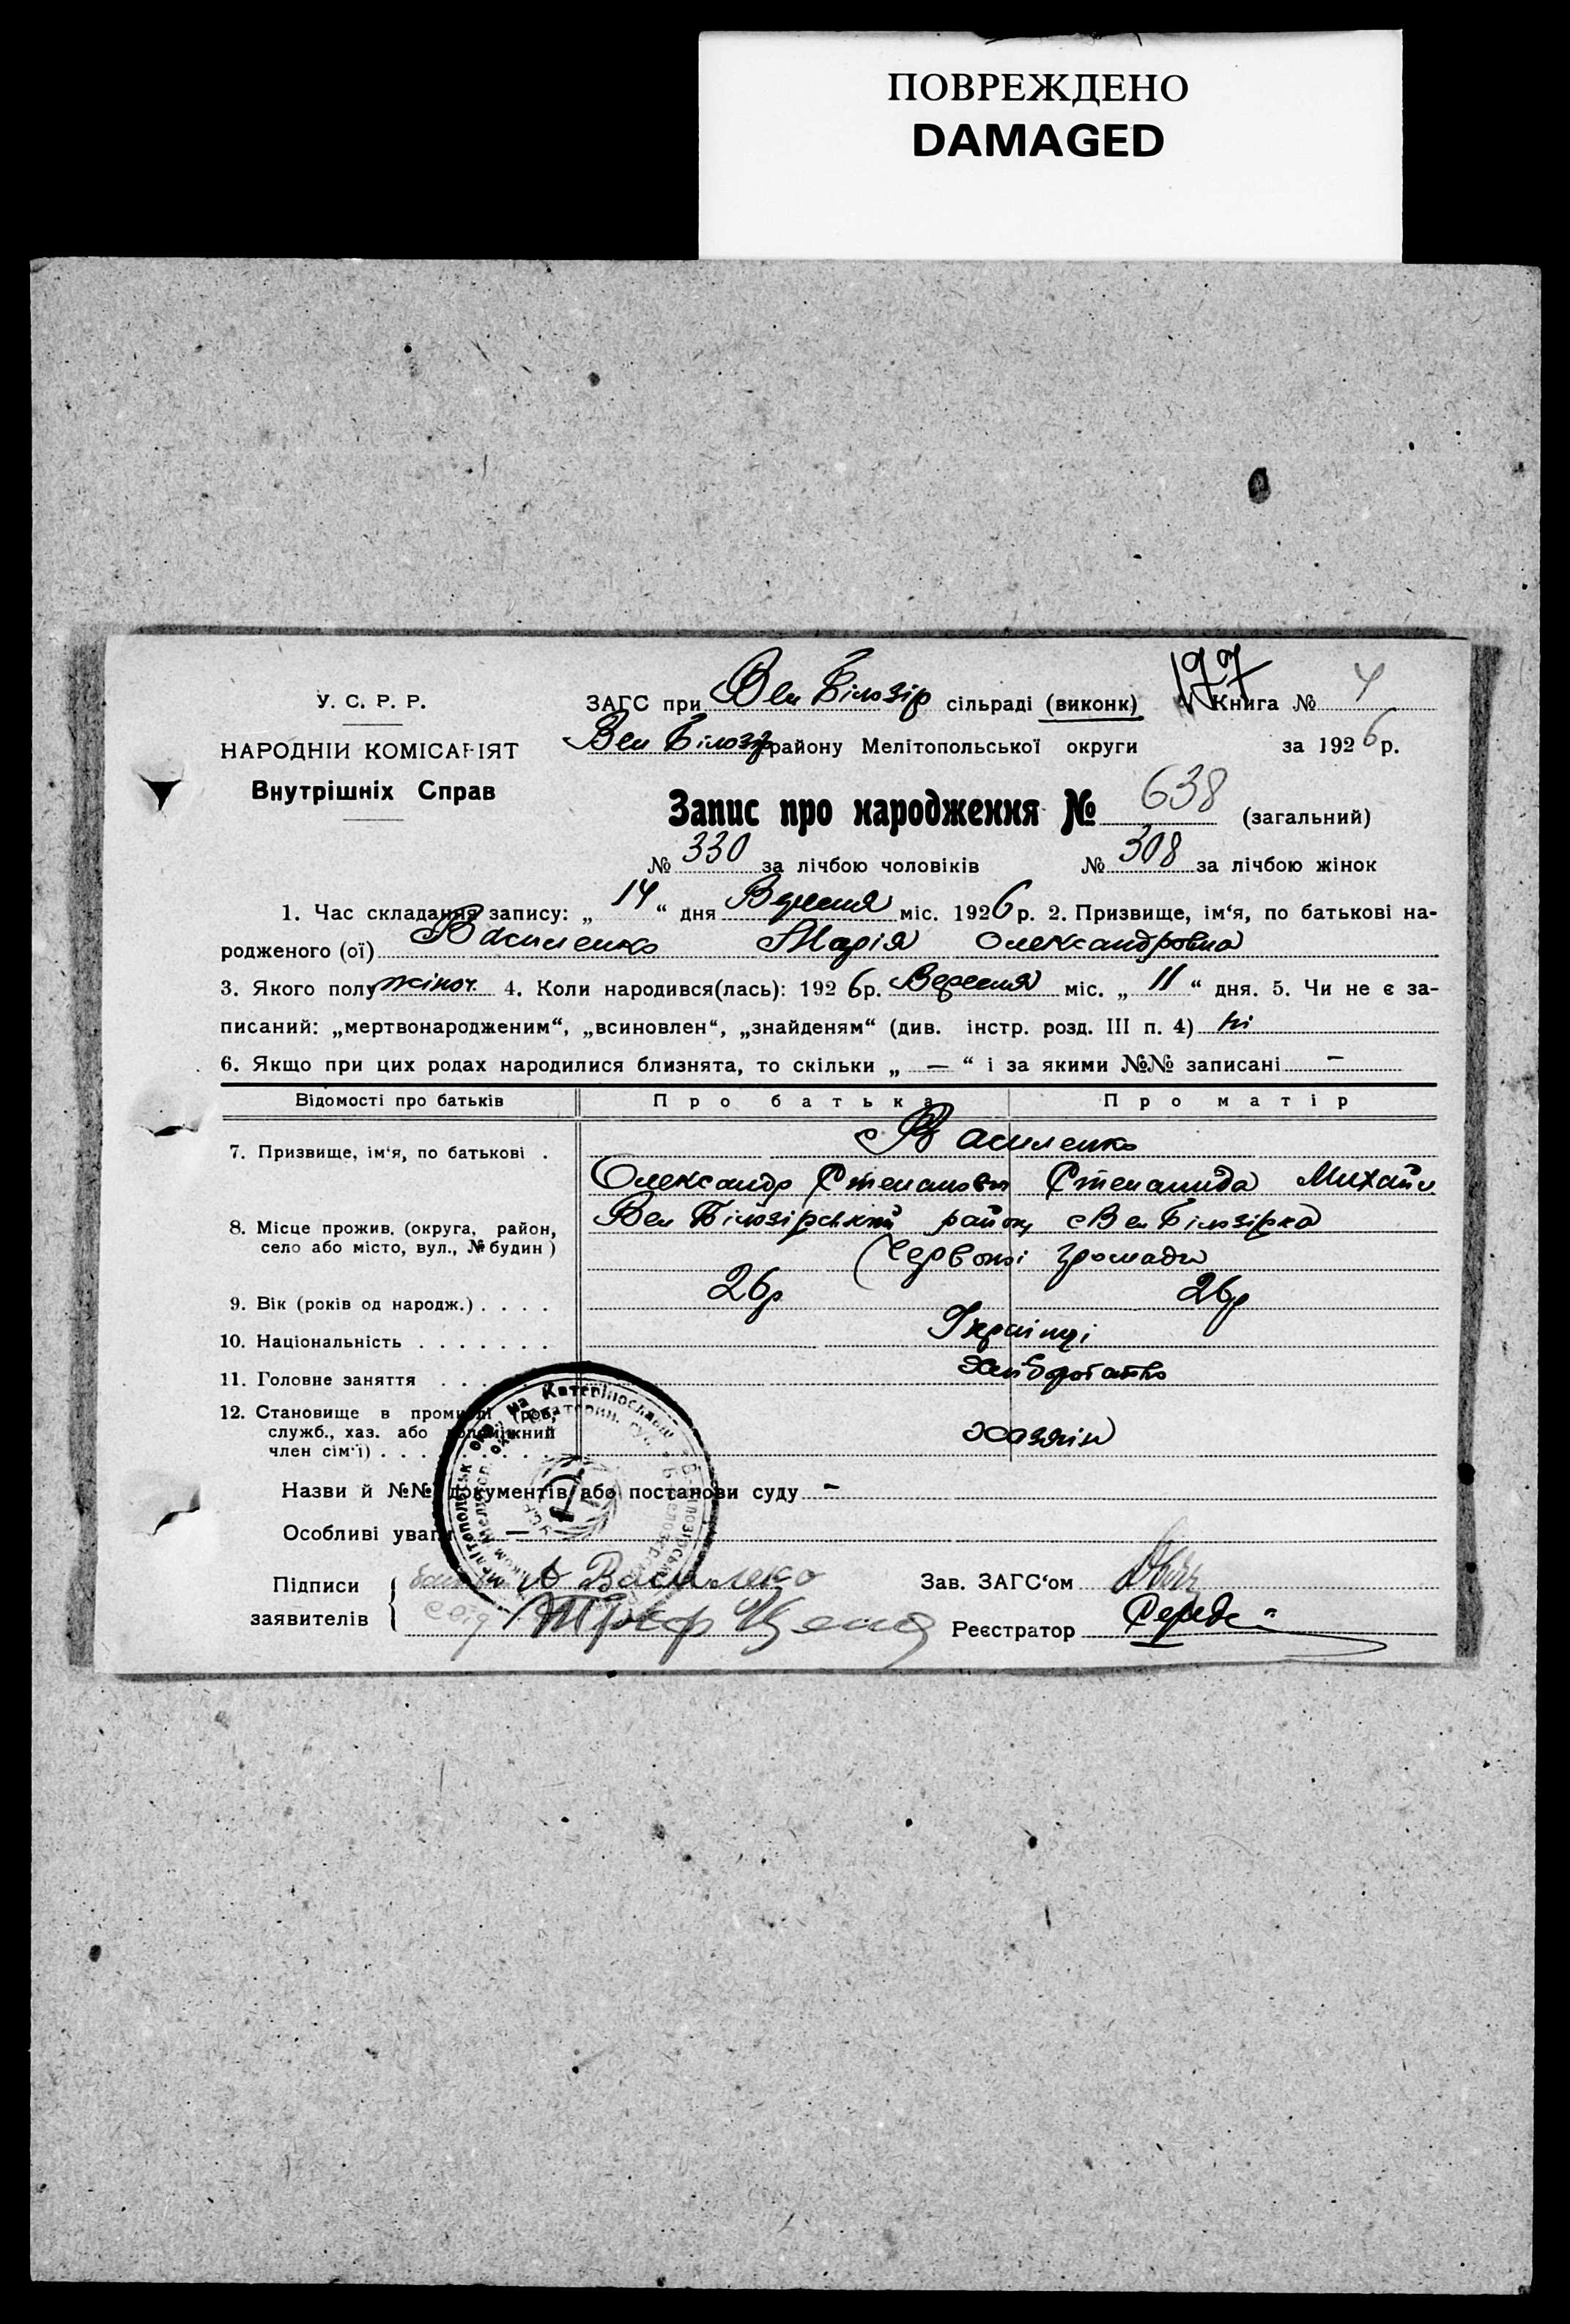 ПОВРЕЖДЕНО
DAMAGED
У. С. Р. Р.
НАРОДНІЙ КОМІСАРІЯТ
Внутрішніх Справ
197
ЗАГС при Вел Білозір сільраді (виконк) Книга № 4
Вел Білозір району Мелітопольської округи за 1926 р.
Запис про народження № 638 (загальний)
№ 330 за лічбою чоловіків № 308 за лічбою жінок
1. Час складання запису: „ 14 “ дня Вересня міс. 1926 р. 2. Призвище, ім‘я, по батькові на-
родженого (ої) Василенко Марія Олександровна
3. Якого полу жіноч. 4. Коли народився(лась): 1926 р. Вересня міс. „ 11 “ дня. 5. Чи не є за-
писаний: „мертвонародженим“, „всиновлен“, „знайденям“ (див. інстр. розд. III п. 4) ні
6. Якщо при цих родах народилися близнята, то скільки „ — “ і за якими №№ записані —
Відомості про батьків Про батька Про матір
7. Призвище, ім‘я, по батькові . Василенко
Олександр Степанович Степанида Михайл
8. Місце прожив. (округа, район, Вел Білозірський району с Вел Білозірка
село або місто, вул., № будин) Червоної громади
9. Вік (років од народж.) . . . . 26р 26р
10. Національність . . . . . . . Українці
11. Головне заняття . . . . Хліборобство
12. Становище в промислі (роб.,
служб., хаз. або допоміжний хазяїн
член сім‘ї) . . . .
Назви й №№ документів або постанови суду —
Особливі уваги —
Підписи А Василеко Зав. ЗАГС‘ом
заявителів Реєстратор Середа